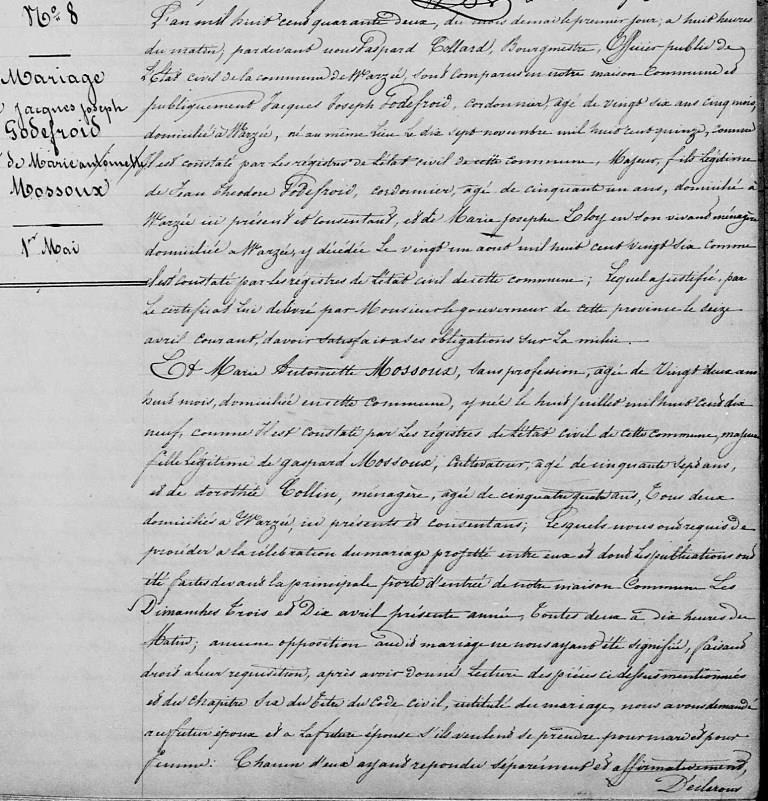 N° 8
Mariage
Jacques joseph
Godefroid
& de Marie antoinette
Mossoux
1er Mai
L'an mil huit cent quarante deux, du mois de mai le premier jour, a huit heures
du matin, pardevant nous Gaspard Collard, Bourgmestre, Officier public de
L'Etat civil de la commune de Warzée, sont comparus en notre maison commune et
publiquement Jacques Joseph Godefroid, cordonnier, agé de vingt six ans cinq mois,
domicilié à Warzée, né au même lieu le dix sept novembre mil huit cent quinze, comme
Il est constaté par les registres de l'état civil de cette commune, Majeur, fils légitime
de Jean Theodore Godefroid, cordonnier, agé de cinquante un ans, domicilié à
Warzée ici présent et consentant, et de Marie Josephe Cloy en son vivant ménagère
domiciliée a Warzée, y décédée le vingt un aout mil huit cent vingt six comme
il est constaté par les registres de l'état civil de cette commune; Lequel a justifié, par
Le certificat lui délivré par Monsieur le gouverneur de cette province le seize
avril courant, d'avoir satisfait a ses obligations sur la milice.
Et Marie Antoinette Mossoux, sans profession, agée de Vingt deux ans
huit mois, domiciliée en cette commune, y née le huit juillet mil huit cent dix
neuf, comme Il est constaté par les régistres de l'état civil de cette commune, majeure
fille légitime de gaspard Mossoux, Cultivateur, agé de cinquante sept ans,
et de dorothée Collin, ménagère, agée de cinquante quatre ans, Tous deux
domiciliés à Warzée, ici présents et consentans; Lesquels nous ont requis de
proceder a la célébration du mariage projetté entre eux et dont les publications ont
été faites devant la principale porte d'entrée de notre maison Commune Les
Dimanches Trois et Dix avril présente année, Toutes deux à dix heures du
Matin; aucune opposition audit mariage ne nous ayant été signifiée, faisant
droit a leur requisition, après avoir donné Lecture des pièces ci dessus mentionnées
et du chapitre Six du Titre du Code Civil, intitulé du mariage, nous avons demandé
au futur époux et a La future épouse s'ils veulent se prendre pour mari et pour
femme: Chacun d'eux ayant repondu séparément et affirmativement,
Déclarons